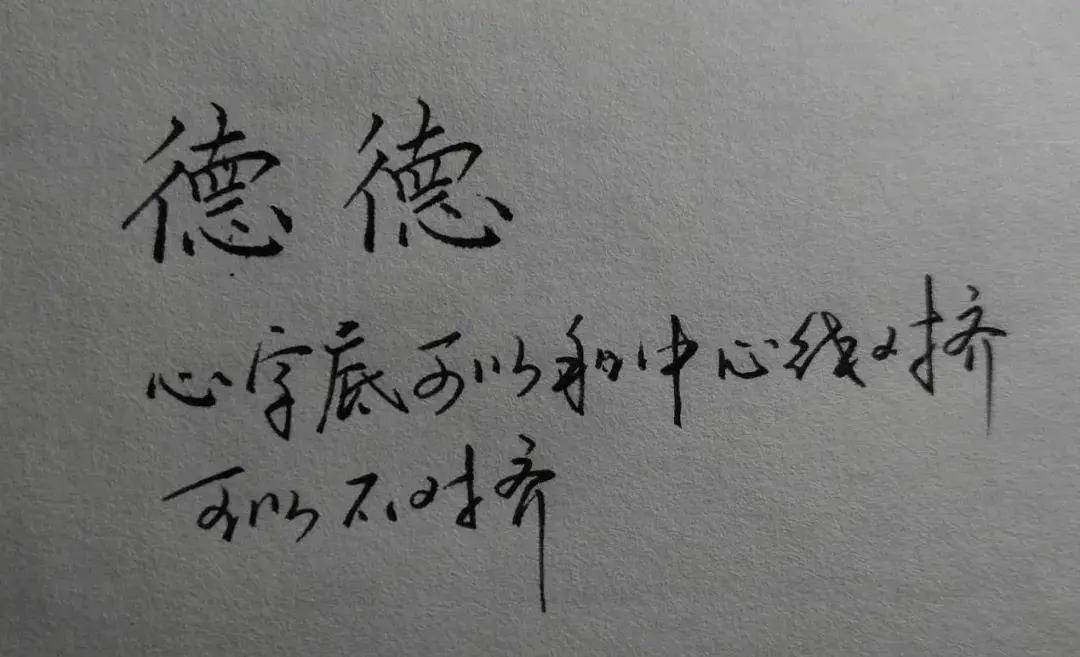 德德
心字底可以和中心线对齐
可以不对齐